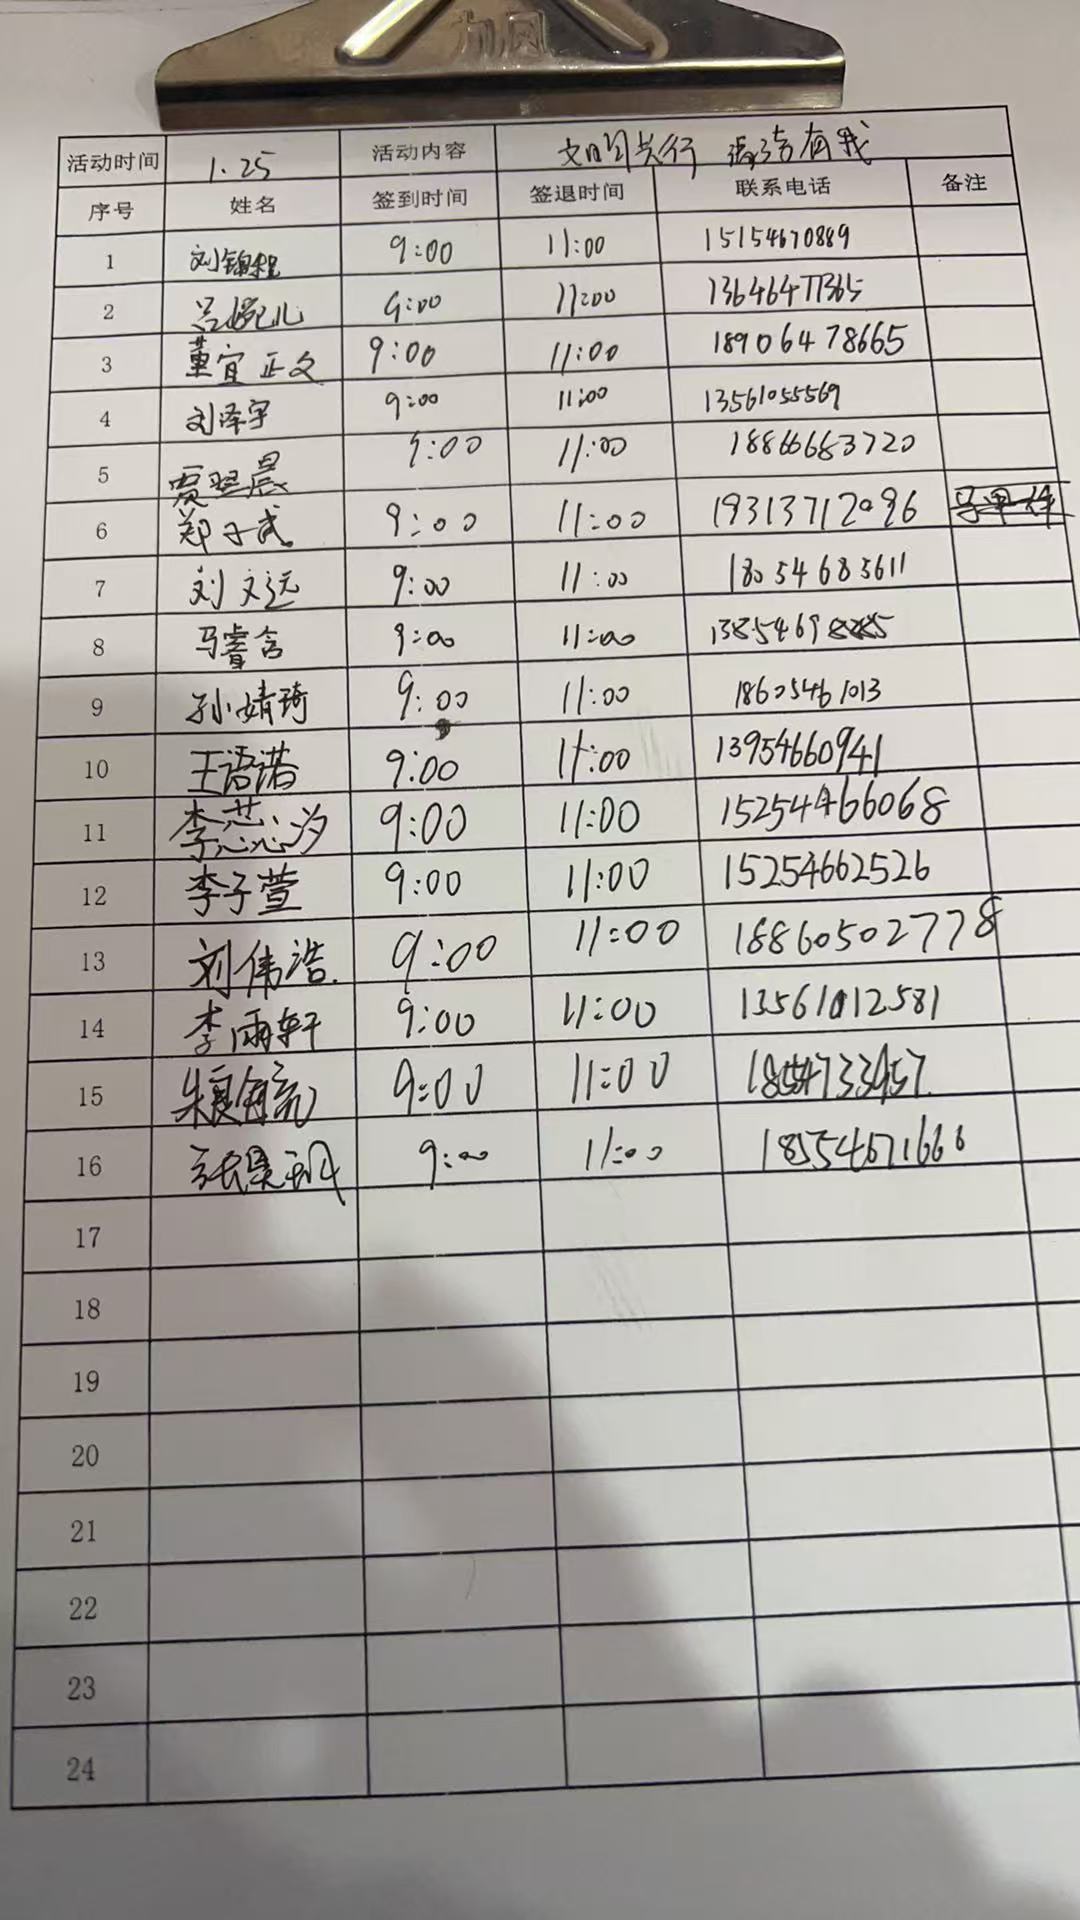 活动时间 1.25 活动内容 文明同行 清洁有我
序号 姓名 签到时间 签退时间 联系电话 备注
1 刘锦程 9:00 11:00 15154670889
2 吕婉儿 9:00 11:00 13646477365
3 董宜正文 9:00 11:00 18906478665
4 刘泽宇 9:00 11:00 13561055569
5 贾翌晨 9:00 11:00 18866683720
6 郑子武 9:00 11:00 19313712096
7 刘文远 9:00 11:00 18054683611
8 马睿含 9:00 11:00
9 孙婧琦 9:00 11:00 18605461013
10 王语诺 9:00 11:00 13954660941
11 李芯汐 9:00 11:00 15254466068
12 李子萱 9:00 11:00 15254662526
13 刘伟浩. 9:00 11:00 18860502778
14 李雨轩 9:00 11:00 13561012581
15 9:00 11:00
16 9:00 11:00 18554671666
17
18
19
20
21
22
23
24